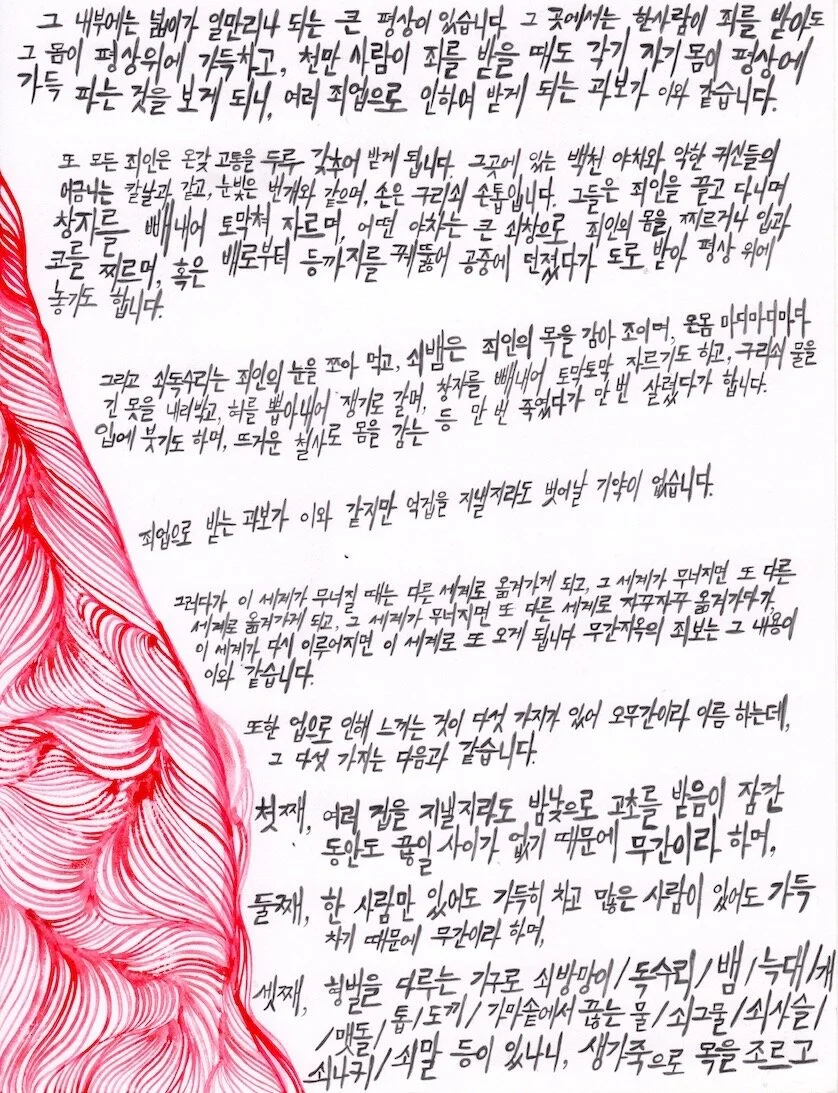 그 내부에는 넓이가 일만리나 되는 큰 평상이 있습니다 그 곳에서는 한사람이 죄를 받아도
그 몸이 평상위에 가득차고, 천만 사람이 죄를 받을 때도 각기 자기 몸이 평상에
가득 차는 것을 보게 되니, 여러 죄업으로 인하여 받게 되는 과보가 이와 같습니다.
또 모든 죄인은 온갖 고통을 두루 갖추어 받게 됩니다. 그곳에 있는 백천 야차와 악한 귀신들의
어금니는 칼날과 같고, 눈빛은 번개와 같으며, 손은 구리쇠 손톱입니다. 그들은 죄인을 끌고 다니며
창자를 빼내어 토막쳐 자르며, 어떤 야차는 큰 쇠창으로 죄인의 몸을 찌르거나 입과
코를 찌르며, 혹은 배로부터 등까지를 꿰뚫어 공중에 던졌다가 도로 받아 평상 위에
놓기도 합니다.
그리고 쇠독수리는 죄인의 눈을 쪼아 먹고, 쇠뱀은 죄인의 목을 감아 조이며, 온몸 마디마디마다
긴 못을 내려박고, 혀를 뽑아내어 쟁기로 갈며, 창자를 빼내어 토막토막 자르기도 하고, 구리쇠 물을
입에 붓기도 하며, 뜨거운 철사로 몸을 감는 등 만 번 죽였다가 만 번 살렸다가 합니다.
죄업으로 받는 과보가 이와 같지만 억겁을 지낼지라도 벗어날 기약이 없습니다.
그러다가 이 세계가 무너질 때는 다른 세계로 옮겨가게 되고, 그 세계가 무너지면 또 다른
세계로 옮겨가게 되고, 그 세계가 무너지면 또 다른 세계로 자꾸자꾸 옮겨가다가,
이 세계가 다시 이루어지면 이 세계로 또 오게 됩니다 무간지옥의 죄보는 그 내용이
이와 같습니다.
또한 업으로 인해 느끼는 것이 다섯 가지가 있어 오무간이라 이름 하는데,
그 다섯 가지는 다음과 같습니다.
첫째, 여러 겁을 지낼지라도 밤낮으로 고초를 받음이 잠깐
동안도 끊일 사이가 없기 때문에 무간이라 하며,
둘째, 한 사람만 있어도 가득히 차고 많은 사람이 있어도 가득
차기 때문에 무간이라 하며,
셋째, 형벌을 다루는 기구로 쇠방망이/독수리/뱀/늑대/개
/맷돌/톱/도끼/가마솥에서 끓는 물/쇠그물/쇠사슬/
쇠나귀/쇠말 등이 있나니, 생가죽으로 목을 조르고